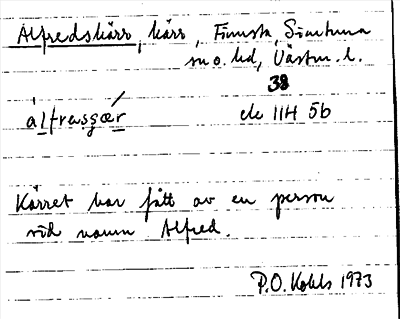 Alfredskärr, kärr, Finnsta, Simtuna
sn o. hd, Västm. l.
38
àlfrasgær ek 11H 5b
Kärret har fått av en person
vid namn Alfred.
P.O. Kohls 1973